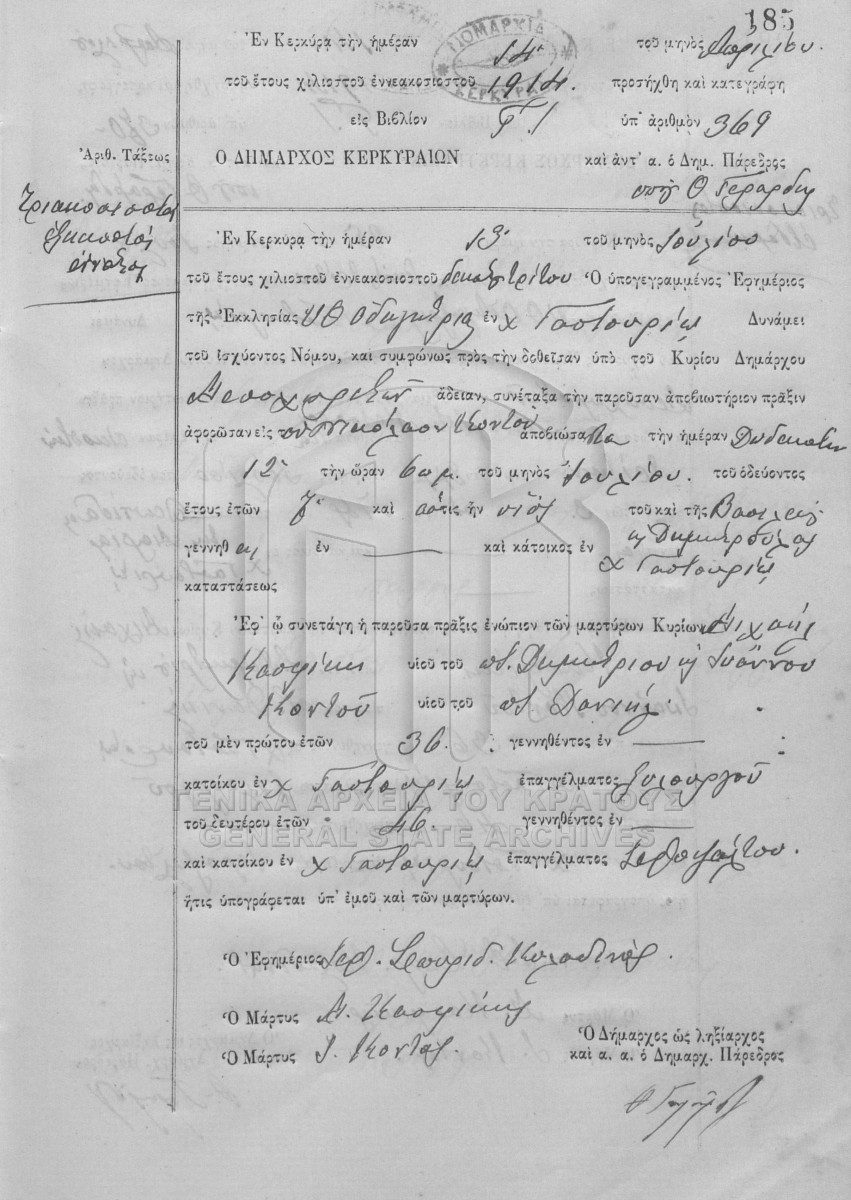 185
Ἐν Κερκύρᾳ τὴν ἡμέραν 14 τοῦ μηνὸς Ἀπριλίου.
τοῦ ἔτους χιλιοστοῦ ἐννεακοσιοστοῦ 1914. προσήχθη καὶ κατεγράφη
εἰς Βιβλίον Γ! ὑπ' ἀριθμὸν 369
Ἀριθ. Τάξεως
Ο ΔΗΜΑΡΧΟΣ ΚΕΡΚΥΡΑΙΩΝ καὶ ἀντ' α. ὁ Δημ. Πάρεδρος
ΔΗΜΑΡΧΙΑ ΚΕΡΚΥΡΑ
Ἐν Κερκύρᾳ τὴν ἡμέραν 13 τοῦ μηνὸς Ἰουλίου
τοῦ ἔτους χιλιοστοῦ ἐννεακοσιοστοῦ δεκάτου τρίτου Ὁ ὑπογεγραμμένος Ἐφημέριος
τῆς Ἐκκλησίας Υ Θ Οδηγητρίας ἐν χ Γαστουρίῳ Δυνάμει
τοῦ ἰσχύοντος Νόμου, καὶ συμφώνως πρὸς τὴν δοθεῖσαν ὑπὸ τοῦ Κυρίου Δημάρχου
Μεσοχωριτῶν ἄδειαν, συνέταξα τὴν παροῦσαν ἀποβιωτήριον πρᾶξιν
ἀφορῶσαν εἰς τὸν Νικόλαον Κοντοῦ ἀποβιώσαντα τὴν ἡμέραν Δωδεκάτην
12 τὴν ὥραν 6 π.μ. τοῦ μηνὸς Ἰουλίου. τοῦ ὁδεύοντος
ἔτους ἐτῶν καὶ ὅστις ἦν υἱὸς τοῦ καὶ τῆς Βασιλείου
γεννηθ ἐν — καὶ κάτοικος ἐν χ Γαστουρίῳ
καταστάσεως
Ἐφ' ᾧ συνετάγη ἡ παροῦσα πρᾶξις ἐνώπιον τῶν μαρτύρων Κυρίων Μιχαήλ
Κασφίκη υἱοῦ τοῦ ποτ. Δημητρίου ϗ Ἰωάννου
Κοντοῦ υἱοῦ τοῦ ποτ. Δανιήλ.
τοῦ μὲν πρώτου ἐτῶν 36. γεννηθέντος ἐν —
κατοίκου ἐν χ Γαστουρίῳ ἐπαγγέλματος ξυλουργοῦ
τοῦ δευτέρου ἐτῶν 46. γεννηθέντος ἐν —
καὶ κατοίκου ἐν χ Γαστουρίῳ ἐπαγγέλματος
ἥτις ὑπογράφεται ὑπ' ἐμοῦ καὶ τῶν μαρτύρων.
ΓΕΝΙΚΑ ΑΡΧΕΙΑ ΤΟΥ ΚΡΑΤΟΥΣ
GENERAL STATE ARCHIVES
Ὁ Ἐφημέριος Ἱερ. Σπυρίδ.
Ὁ Μάρτυς Μ. Κασφίκης
Ὁ Μάρτυς Ι. Κοντὸς.
Ὁ Δήμαρχος ὡς ληξίαρχος
καὶ α. α. ὁ Δημαρχ. Πάρεδρος